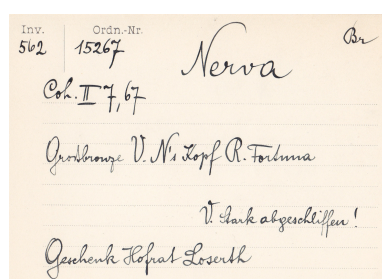 Inv. Ordn.-Nr.
562 15267 Nerva Br
Coh. II 7,67
Großbronze V. N's Kopf R. Fortuna
V. stark abgeschliffen!
Geschenk Hofrat Loserth